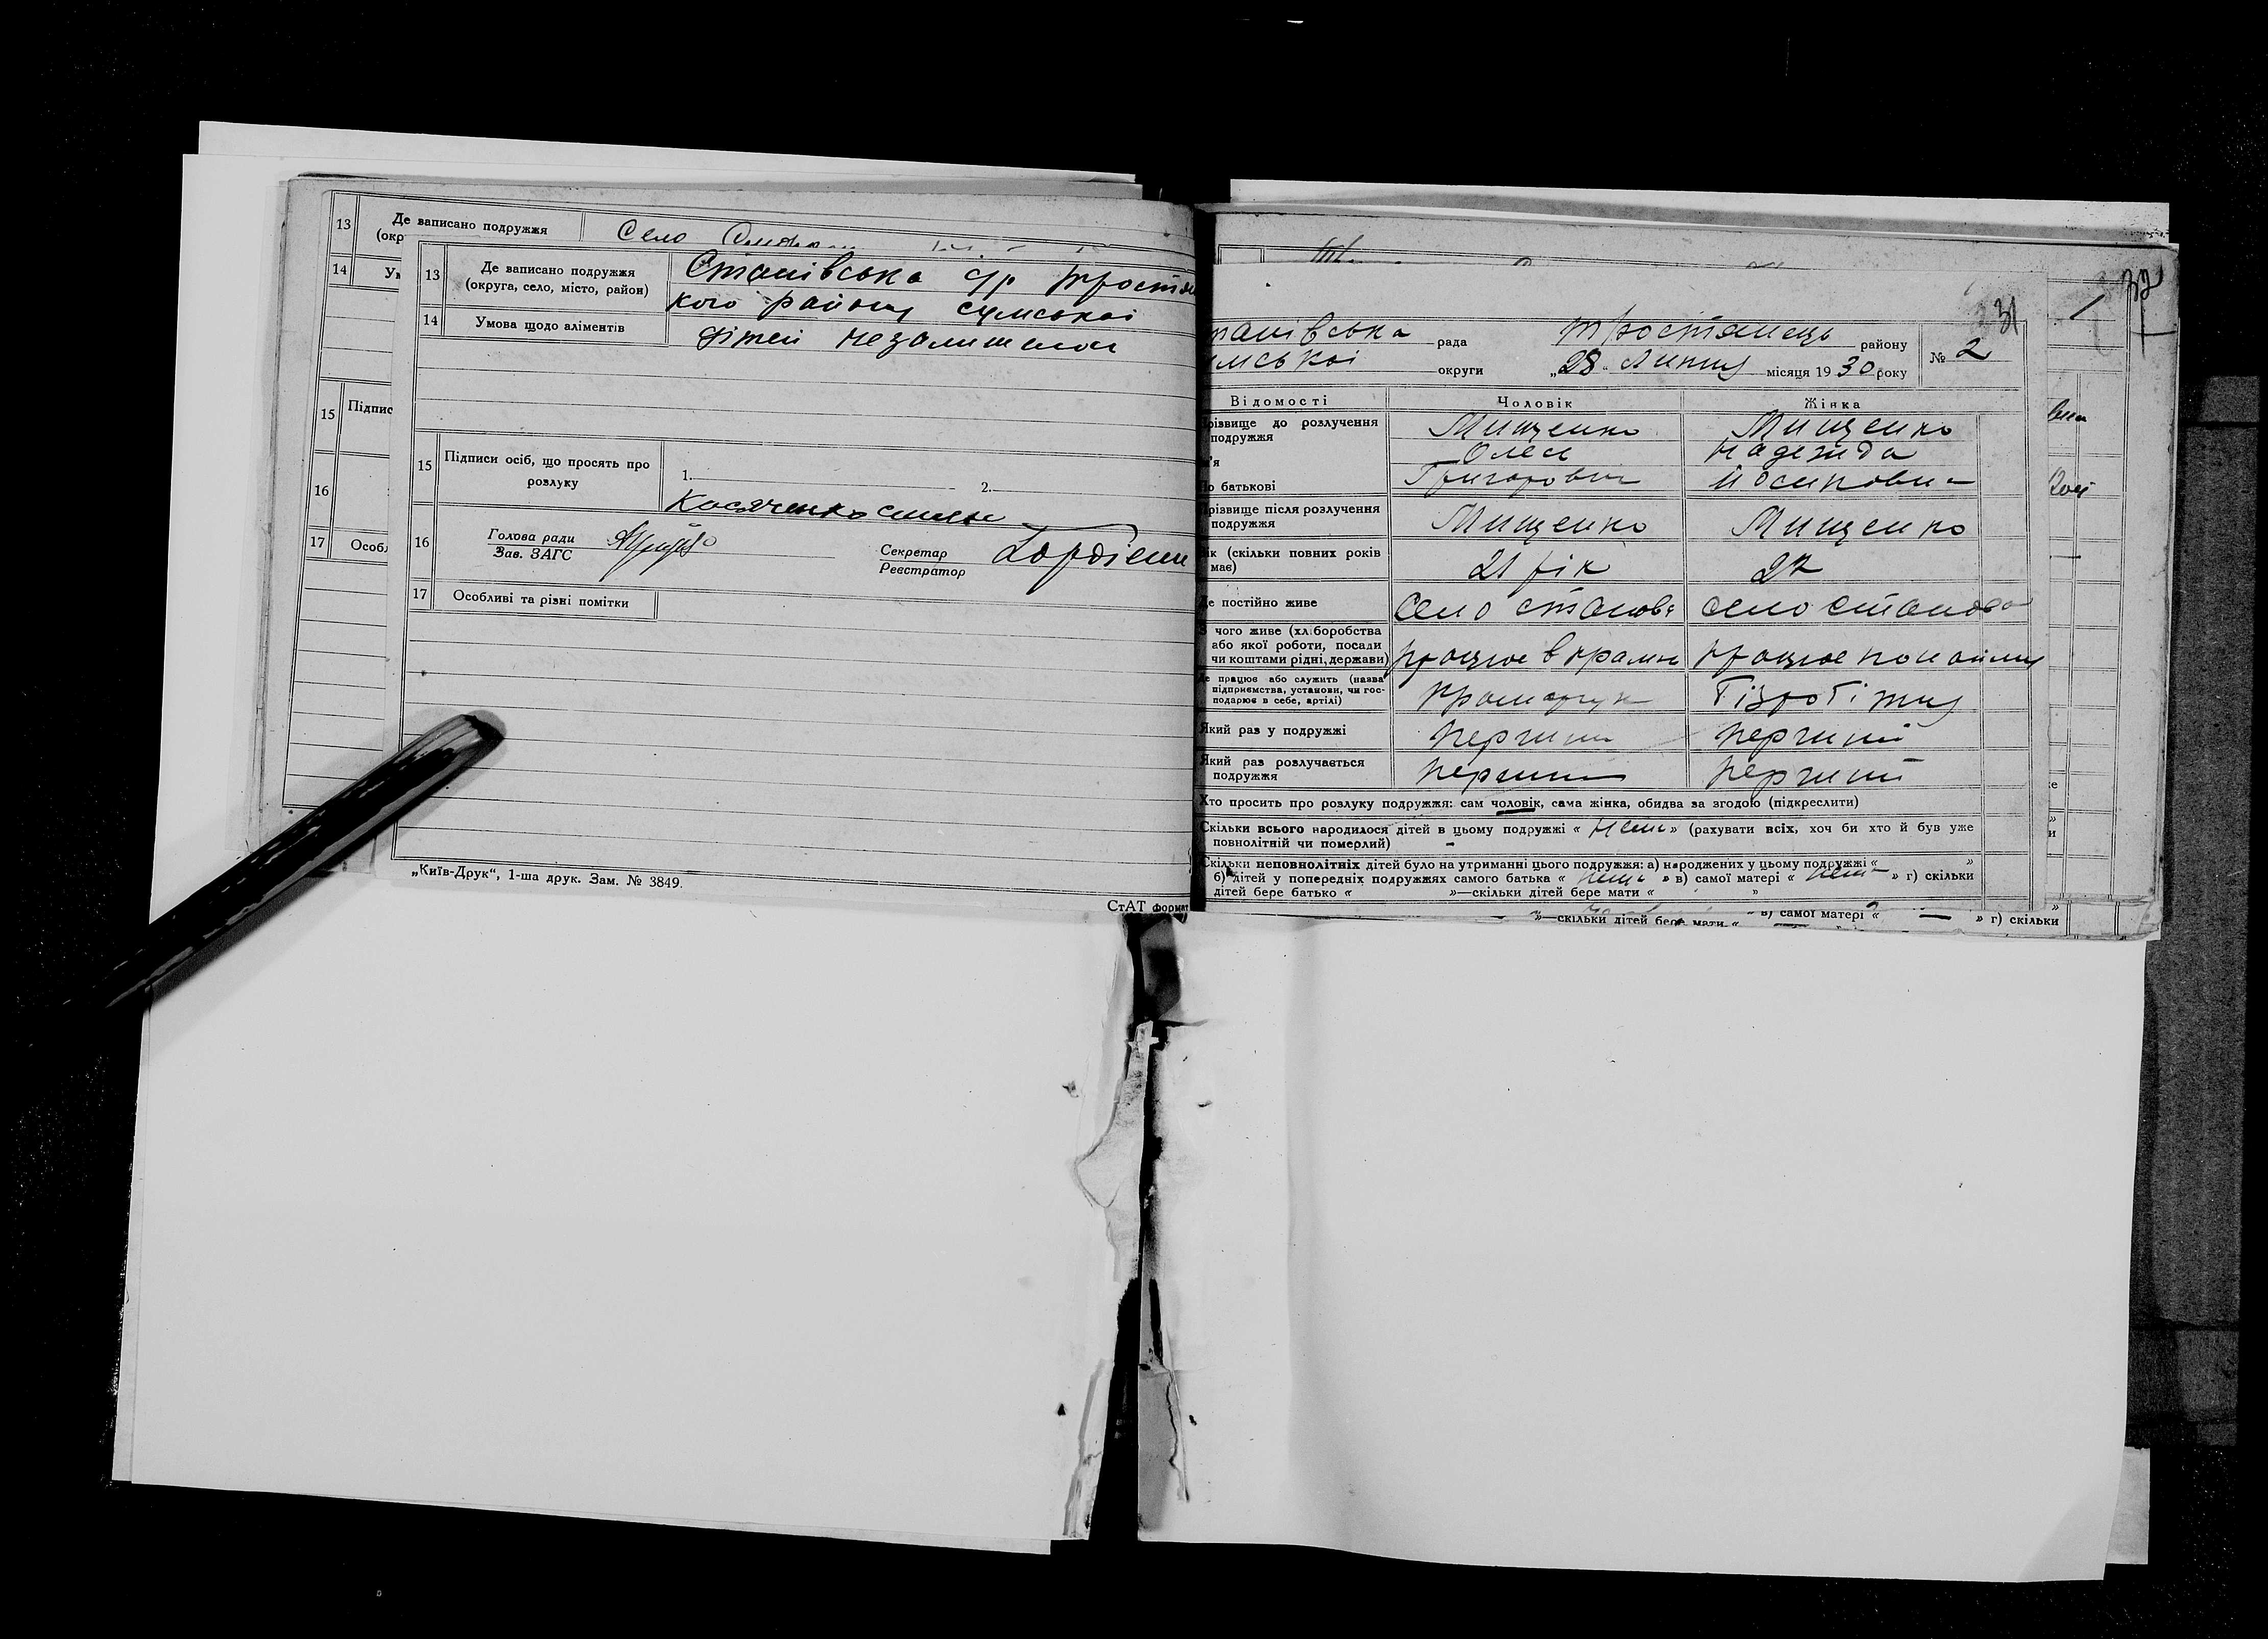 13 Де записано подружжя Село
(окр
14 Ум
15 Підпис
16
17 Особл
13 Де записано подружжя Станівська с/р тростян
(округа, село, місто, район) кого району сумської
14 Умова щодо аліментів дітей незалишилось
15 Підписи осіб, що просять про розлуку 1. 2.
16 Голова ради
Зав. ЗАГС
Секретар Гордієнк
Реєстратор
17 Особливі та різні помітки
„Київ-Друк“, 1-ша друк. Зам. № 3849.
СтАТ формат
32
31
танівська рада тростянець району № 2
умської округи „28“ липня місяця 1930 року
Відомості Чоловік Жінка
різвище до розлучення подружжя Мищенко Мищенко
м'я Олесь Надежда
о батькові Григорович Йосиповна
різвище після розлучення подружжя Мищенко Мищенко
ік (скільки повних років має) 21 рік 27
е постійно живе село станова село станова
чого живе (хліборобства або якої роботи, посади чи коштами рідні, держави) працює в крамн працює по найму
е працює або служить (назва підприємства, установи, чи господарює в себе, артілі)
Який раз у подружжі перший перший
Який раз розлучається подружжя перший перший
Хто просить про розлуку подружжя: сам чоловік, сама жінка, обидва за згодою (підкреслити)
Скільки всього народилося дітей в цьому подружжі « нема » (рахувати всіх, хоч би хто й був уже
повнолітній чи померлий)
Скільки неповнолітніх дітей було на утриманні цього подружжя: а) народжених у цьому подружжі « »
б) дітей у попередніх подружжях самого батька « нема » в) самої матері « нема » г) скільки
дітей бере батько « »—скільки дітей бере мати « »
в) самої матері « — » г) скільки
»—скільки дітей бере мати «